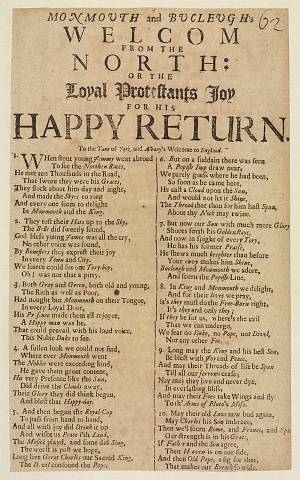 MONMOUTH and BUCLEUGH's
62
WELCOM
FROM THE
NORTH:
OR THE
Loyal Protestants Joy
FOR HIS
HAPPY RETURN.
To the Tune of York and Albany's Welcome to England.
1. WHen stout young Jemmy went abroad
To see the Northern Races,
He met ten Thousands in the Road,
That swore they were his Graces,
They flock about him day and night,
And made the Skyes to ring
And every one seem to delight
In Monmouth and the King.
2. They tost their Hats up to the Sky,
The Bells did sweetly sound,
God bless young Jemmy was all the cry,
No other voice was found,
By Bonefires they exprest their joy
In every Town and City.
We scarce could see one Tory boy,
Oh! was not that a pitty.
3. Both Gray and Green, both old and young,
The Rich as well as Poor,
Had nought but Monmouth on their Tongue,
In every Loyal Door,
His Presence made them all rejoyce,
A Happy man was he,
That could prevail with his loud voice,
This Noble Duke to see.
4. A sullen look we could not find,
Where ever Monmouth went
The Nobles were exceeding kind,
He gave them great content,
His very Presence like the Sun,
Did drive the Clouds away,
Their Glory they did think begun,
And blest that Happy day.
5. And then began the Royal Cup
To pass from hand to hand,
And all with joy did Drink it up
And wisht us Peace i'th Land,
The Musick playd, and some did Sing,
The worst is past we hope,
Long live Great Charles our Sacred King,
The Devil confound the Pope.
6. But on a suddain there was seen
A Popish Star draw near,
We partly guess where he had been,
So soon as he came here,
He cast a Cloud upon the Sun,
And would not let it Shine,
The Thread that thou for him hast Spun,
About thy Neck may twine.
7. But now our Sun with much more Glory
Shoots forth his Goldenrays,
And now in spight of every Tory,
He has his former Praise,
He shews much brighter than before
Your envy makes him Shine,
Bucleugh and Monmouth we adore,
And scorn the Popish Line.
8. In King and Monmouth we delight,
And for their lives we pray,
It's they must do the Free-born right,
It's they and only they;
If they be for us, where's the evil
That we can undergo,
We fear no Duke, no Pope, nor Divel,
Nor any other Foe.
9. Long may the King and his best Son,
Be blest with Joy and Peace,
And may their Threads of life be Spun
Till all our sorrows cease;
Nay may they live and never dye,
In everlasting Bliss,
And may their Foes take Wings and fly
To th' Arms of Pluto's Miss.
10. May their old Love now bud again,
May Charles his Son imbrace,
Then we'l scorn Rome, and France, and Spain
Our strength is in his Grace,
If Father and the Son agree,
Then Heaven is on our side,
And then Old Pope, a fig for thee,
That makes our Breach so wide.